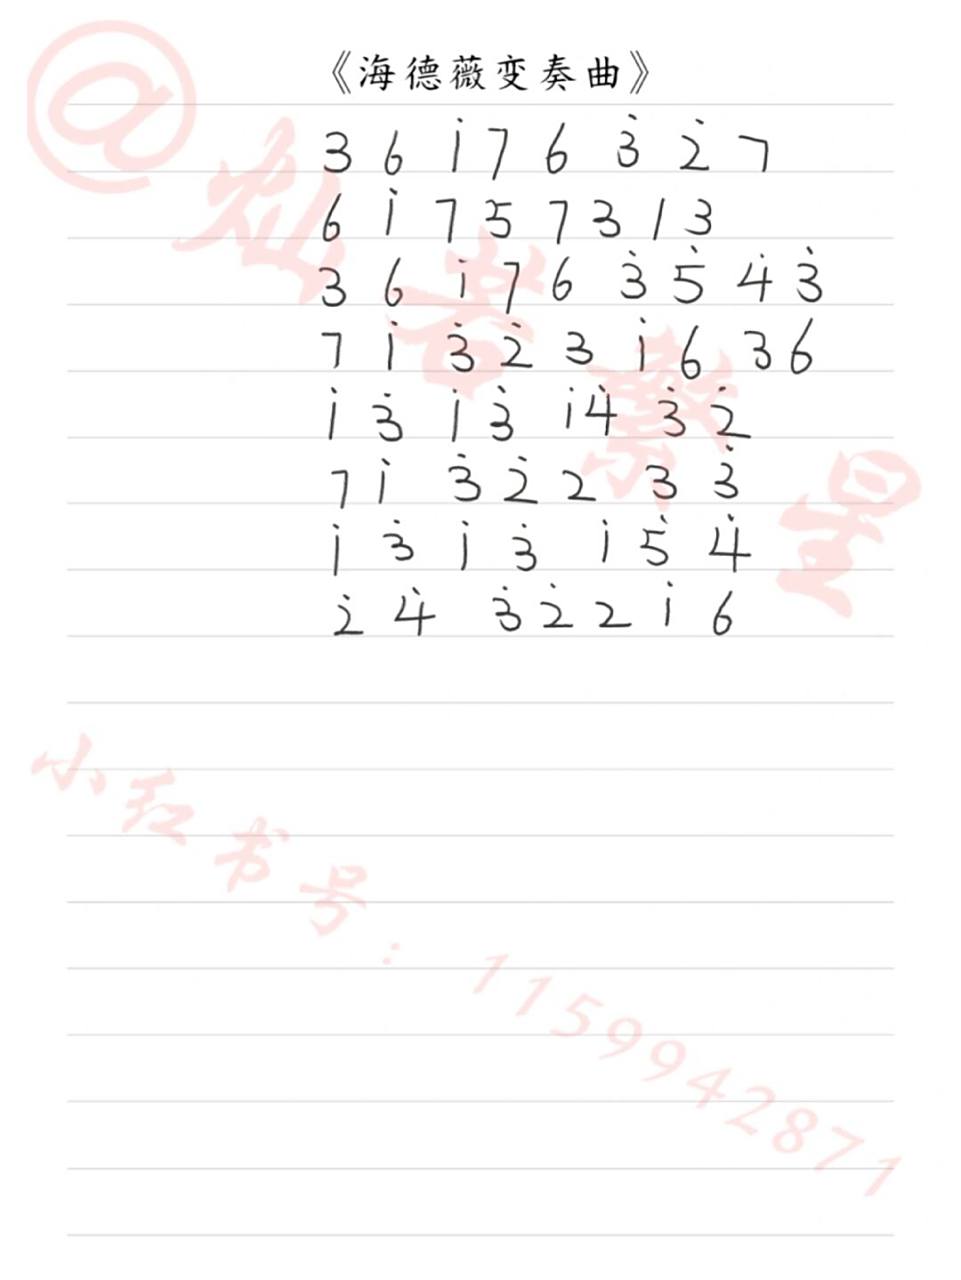 《海德薇变奏曲》
3 6 i 7 6 3̇ 2̇ 7
6 i 7 5 7 3 1 3
3 6 i 7 6 3̇ 5̇ 4̇ 3̇
7 i 3̇ 2̇ 3 i 6 3 6
i 3̇ i 3̇ i 4̇ 3̇ 2̇
7 i 3̇ 2̇ 2 3 3̇
i 3̇ i 3̇ i 5̇ 4̇
2̇ 4̇ 3̇ 2̇ 2 i 6
@灿若繁星
小红书号：1159942871